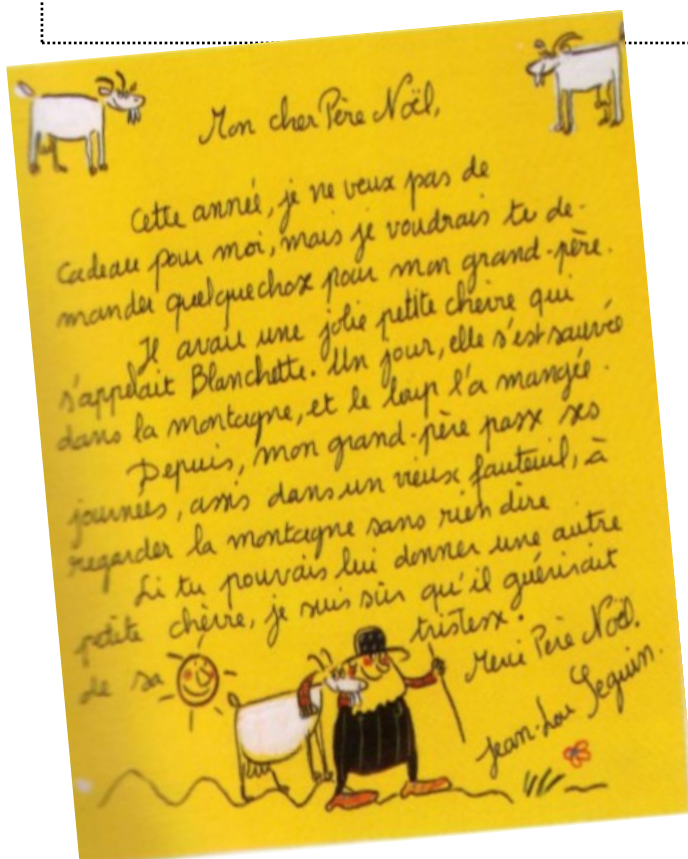 Mon cher Père Noël,
Cette année, je ne veux pas de
cadeau pour moi, mais je voudrais te de-
mander quelque chose pour mon grand-père.
Il avait une jolie petite chèvre qui
s'appelait Blanchette. Un jour, elle s'est sauvée
dans la montagne, et le loup l'a mangée.
Depuis, mon grand-père passe ses
journées, assis dans un vieux fauteuil, à
regarder la montagne sans rien dire
Si tu pouvais lui donner une autre
petite chèvre, je suis sûr qu'il guérirait
de sa tristesse.
Merci Père Noël.
Jean-Lou Seguin.